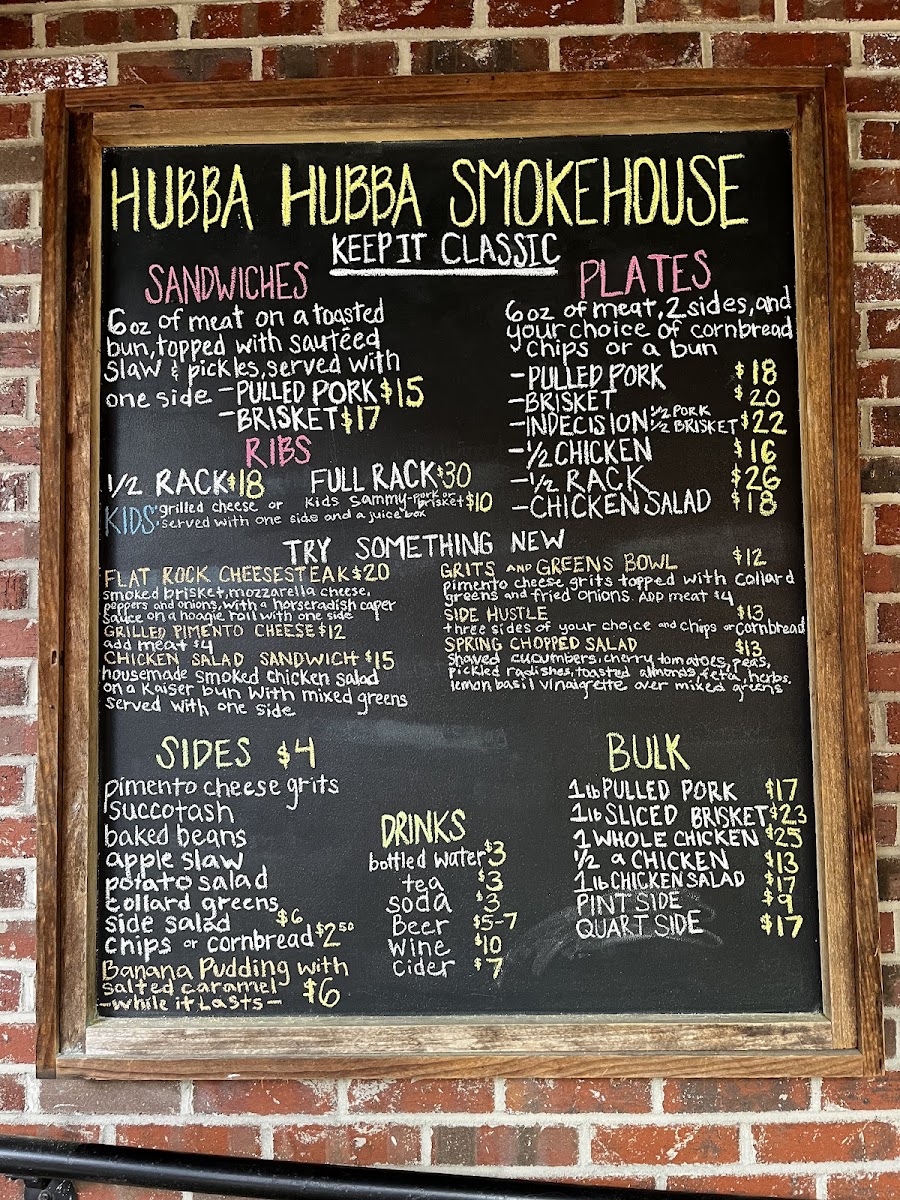 HUBBA HUBBA SMOKEHOUSE
KEEP IT CLASSIC
SANDWICHES
6 oz of meat on a toasted
bun, topped with sautéed
slaw & pickles, served with
one side - PULLED PORK $15
- BRISKET $17
PLATES
6 oz of meat, 2 sides, and
your choice of cornbread
chips or a bun
- PULLED PORK $18
- BRISKET $20
- INDECISION 1/2 PORK 1/2 BRISKET $22
- 1/2 CHICKEN $16
- 1/2 RACK $26
- CHICKEN SALAD $18
RIBS
1/2 RACK $18 FULL RACK $30
KIDS: grilled cheese or Kids Sammy - pork or brisket $10
served with one side and a juice box
TRY SOMETHING NEW
FLAT ROCK CHEESESTEAK $20
smoked brisket, mozzarella cheese,
peppers and onions, with a horseradish caper
sauce on a hoagie roll with one side
GRILLED PIMENTO CHEESE $12
add meat $4
CHICKEN SALAD SANDWICH $15
housemade smoked chicken salad
on a Kaiser bun with mixed greens
served with one side
GRITS AND GREENS BOWL $12
pimento cheese grits topped with collard
greens and fried onions. ADD meat $4
SIDE HUSTLE $13
three sides of your choice and chips or cornbread
SPRING CHOPPED SALAD $13
shaved cucumbers, cherry tomatoes, peas,
pickled radishes, toasted almonds, feta, herbs.
lemon basil vinaigrette over mixed greens
SIDES $4
pimento cheese grits
succotash
baked beans
apple slaw
potato salad
collard greens
side salad $6
chips or cornbread $2.50
Banana Pudding with
salted caramel $6
- while it Lasts -
DRINKS
bottled water $3
tea $3
soda $3
Beer $5-7
wine $10
cider $7
BULK
1 lb PULLED PORK $17
1 lb SLICED BRISKET $23
1 WHOLE CHICKEN $25
1/2 a CHICKEN $13
1 lb CHICKEN SALAD $17
PINT SIDE $9
QUART SIDE $17